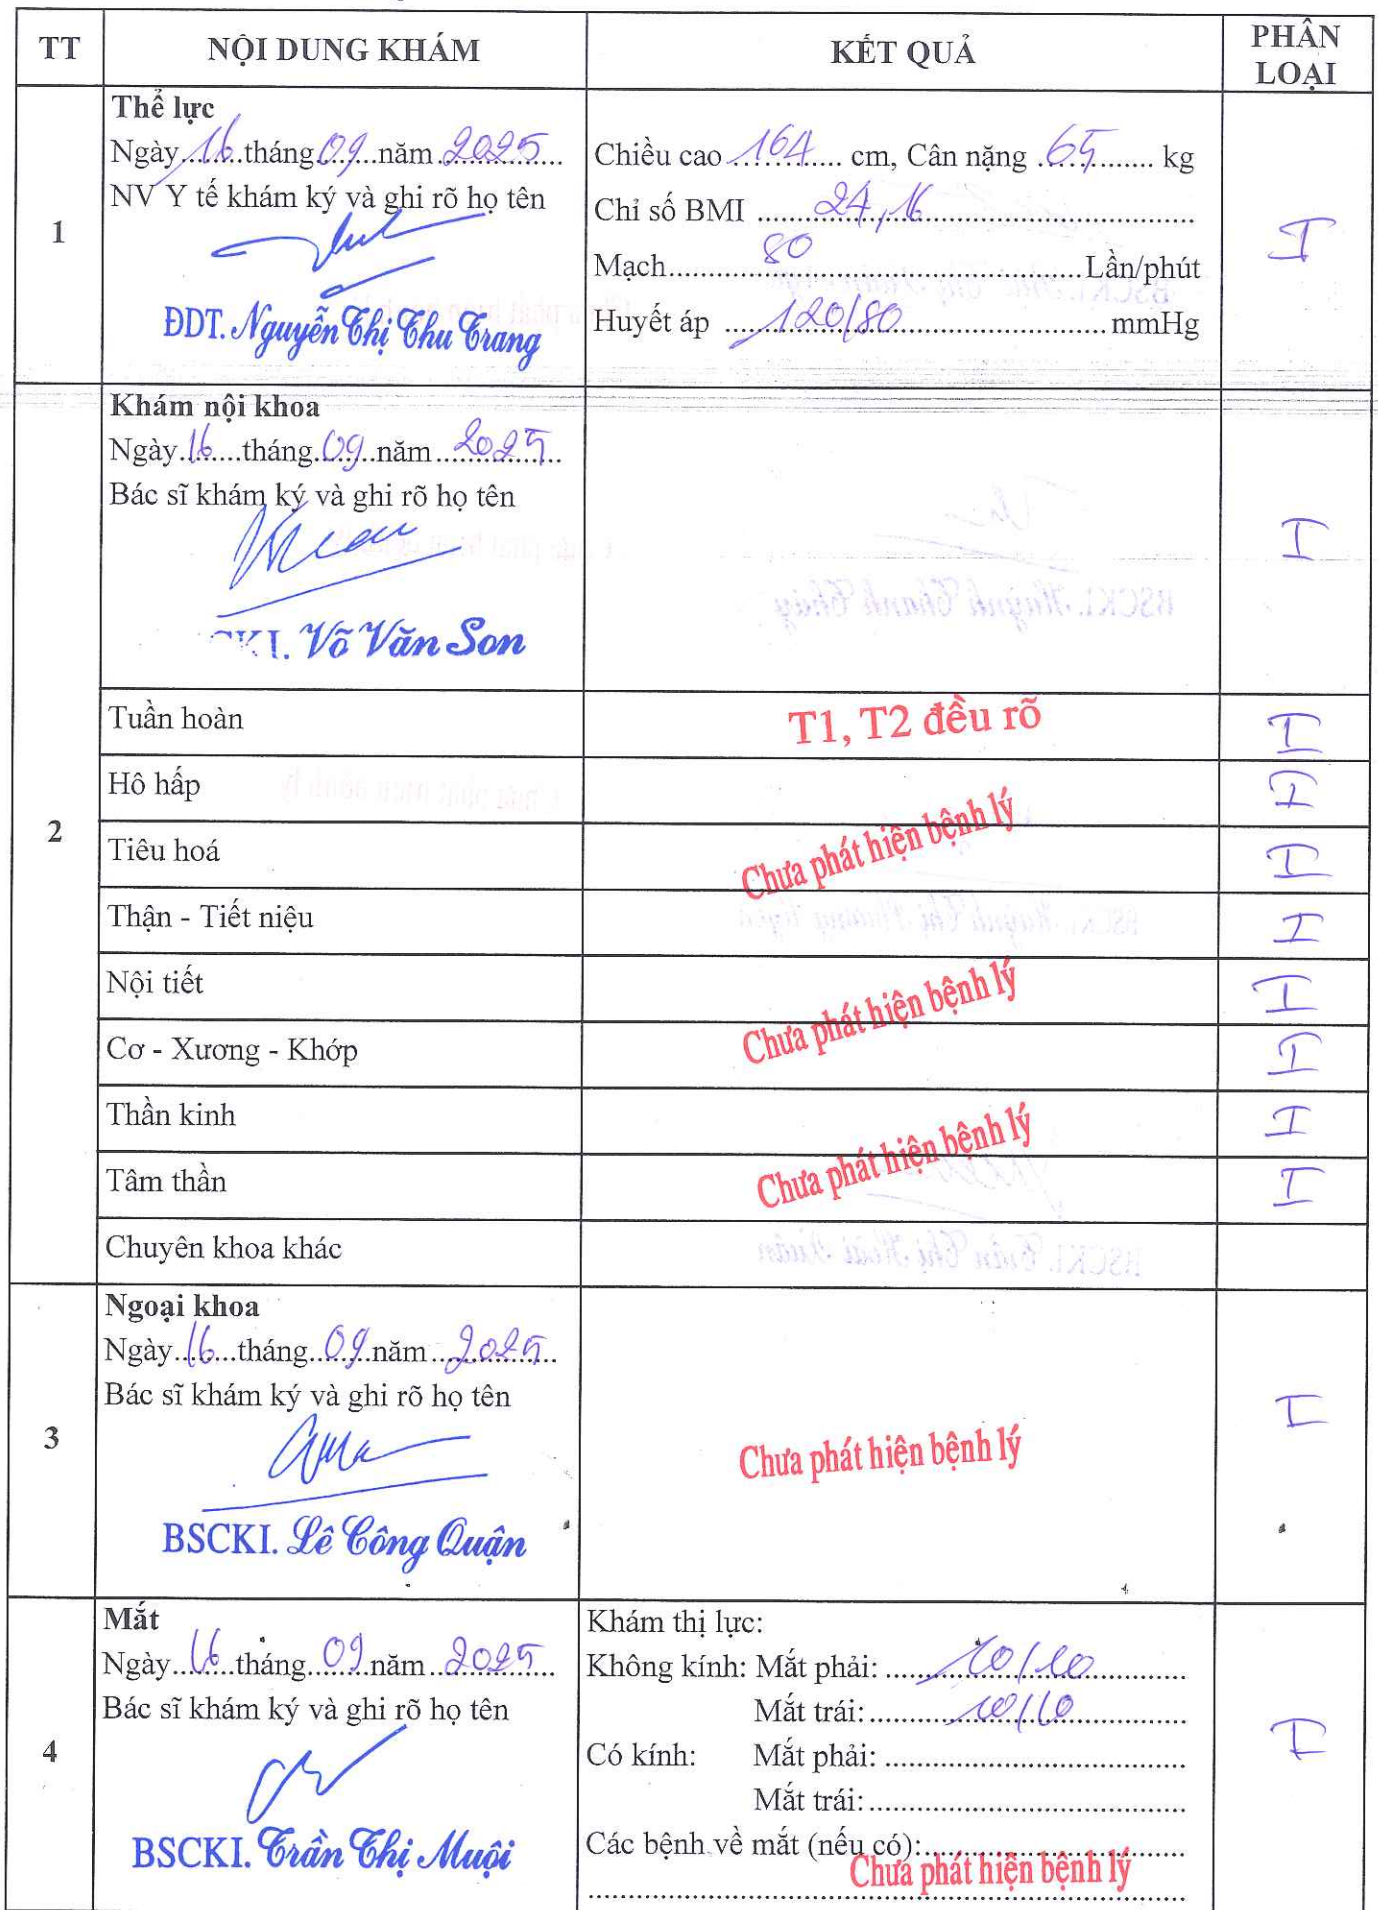 TT NỘI DUNG KHÁM KẾT QUẢ PHÂN LOẠI
1
Thể lực
Ngày 16 tháng 09 năm 2025
NV Y tế khám ký và ghi rõ họ tên
ĐDT. Nguyễn Thị Thu Trang
Chiều cao 164 cm, Cân nặng 65 kg
Chỉ số BMI 24,16
Mạch 80 Lần/phút
Huyết áp 120/80 mmHg
I
2
Khám nội khoa
Ngày 16 tháng 09 năm 2025
Bác sĩ khám ký và ghi rõ họ tên
CKI. Võ Văn Son
I
Tuần hoàn T1, T2 đều rõ I
Hô hấp I
Chưa phát hiện bệnh lý
Tiêu hoá I
Thận - Tiết niệu I
Nội tiết I
Chưa phát hiện bệnh lý
Cơ - Xương - Khớp I
Thần kinh I
Chưa phát hiện bệnh lý
Tâm thần I
Chuyên khoa khác
3
Ngoại khoa
Ngày 16 tháng 09 năm 2025
Bác sĩ khám ký và ghi rõ họ tên
BSCKI. Lê Công Quận
Chưa phát hiện bệnh lý
I
4
Mắt
Ngày 16 tháng 09 năm 2025
Bác sĩ khám ký và ghi rõ họ tên
BSCKI. Trần Thị Muội
Khám thị lực:
Không kính: Mắt phải: 10/10
Mắt trái: 10/10
Có kính: Mắt phải:
Mắt trái:
Các bệnh về mắt (nếu có):
Chưa phát hiện bệnh lý
I